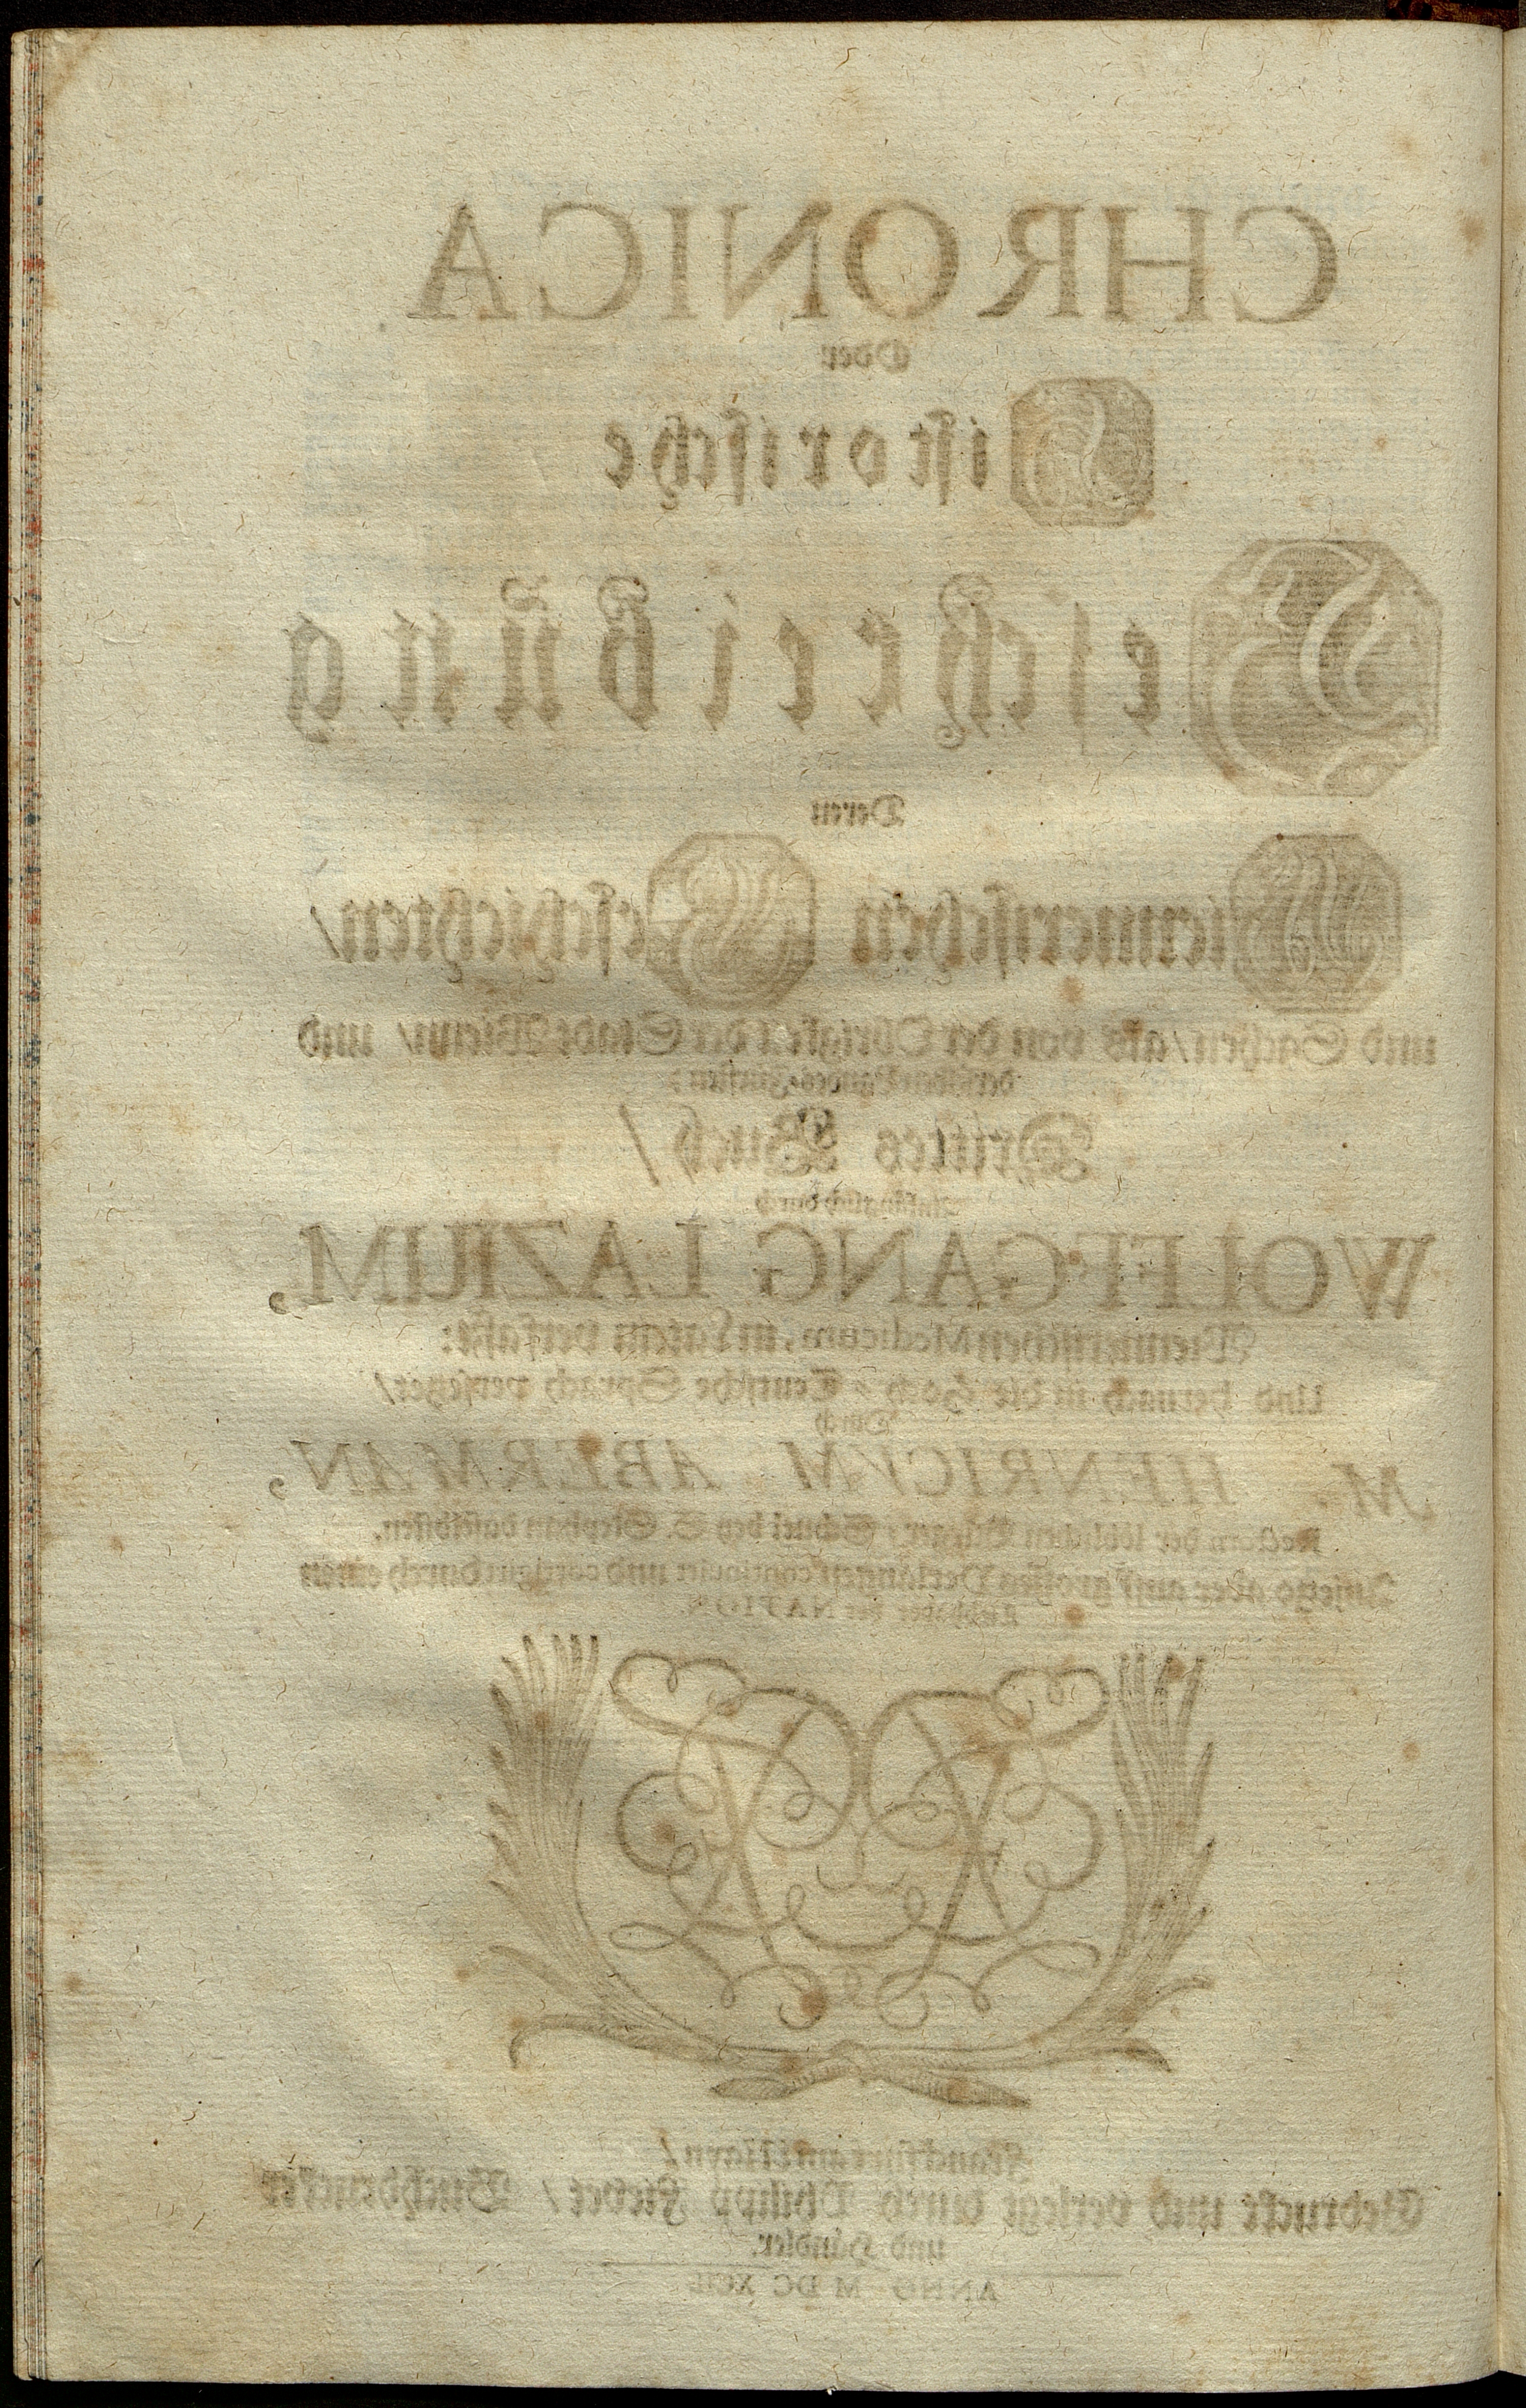 CHRONICA
Oder
Historische
Beschreibung
Deren
Wiennerischen Geschichten/
und Sachen/ als von der Obrigkeit der Stadt Wienn/ und
derselben Landes-Fürsten:
Drittes Buch/
durch
WOLFFGANG LAZIUM,
Wiennerischen Medicum, in Latein verfaßt:
Und hernach in die Hoch-Teutsche Sprach versetzet/
Durch
M. HENRICVM ABERMAN,
Rectorn der löblichen Schul bey S. Stephan daselbsten.
Anjetzo aber auff grosses Verlangen continuirt und corrigirt durch einen
Liebhaber der NATION.
Franckfurt am Mayn/
Gedruckt und verlegt durch Philipp Fievet/ Buchdrucker
und Händler.
ANNO M DC XCII.